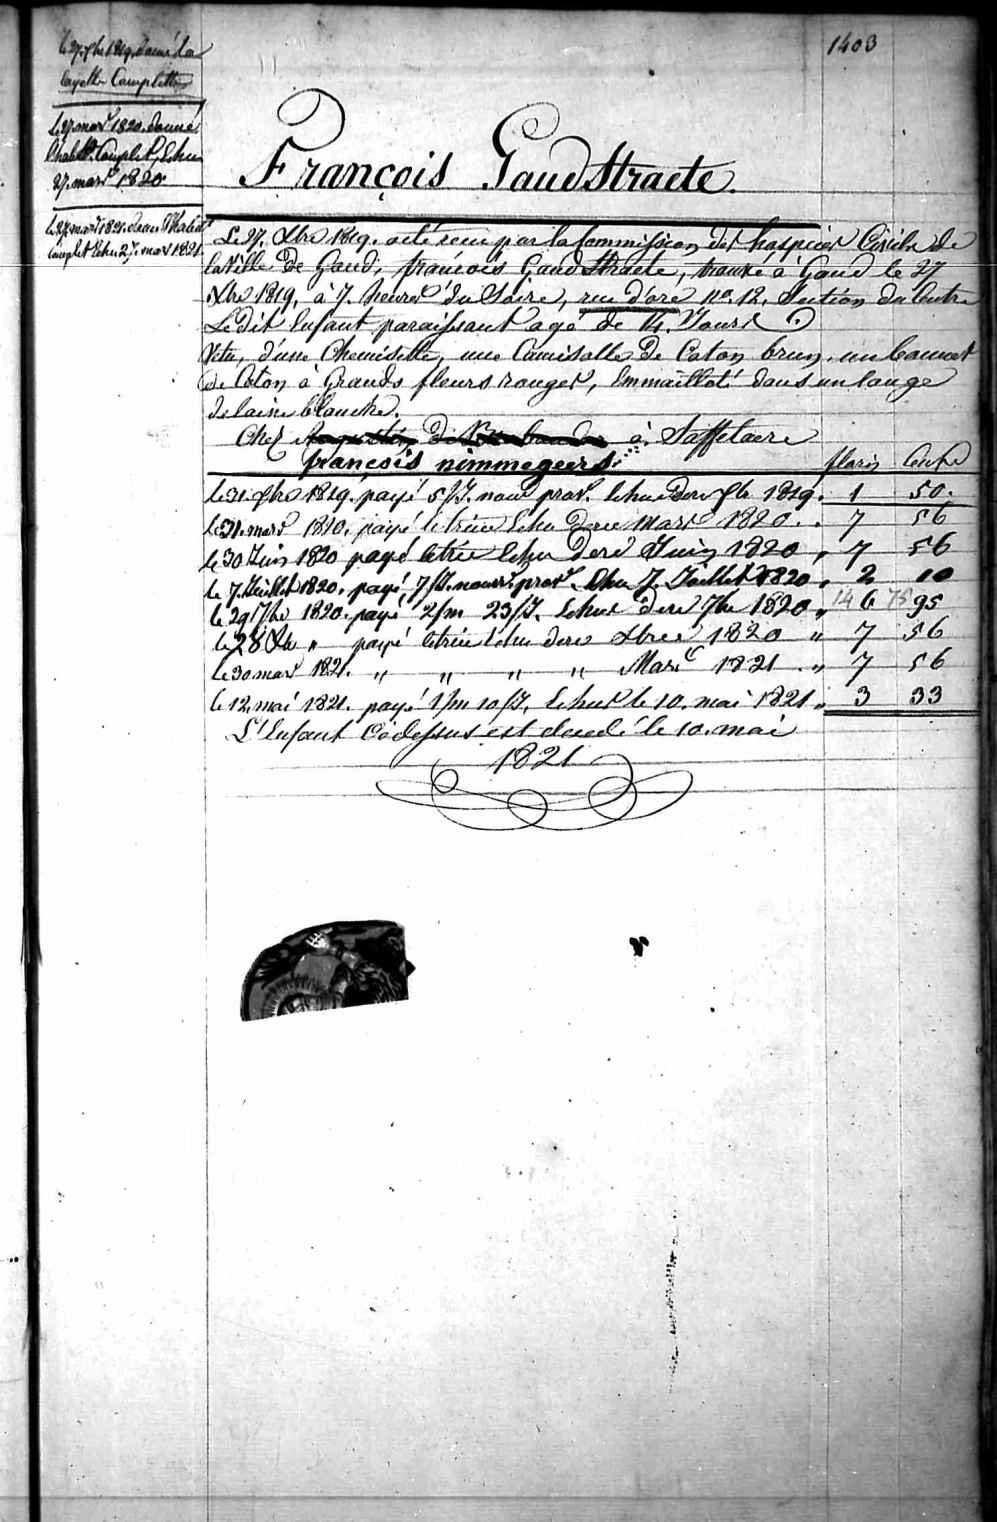 1403
le 27 Xbre 1819. donné la
layette Complette
Le 27 mars 1820. donné
l'habil.t Complet, Echu
27. mars 1820
Le 27 mars 1821. donné l'habil.t
Complet Echu 27. mars 1821.
François GaudStraete.
Le 27. Xbre 1819. a été reçu par la Commission des hospices Civils de
la Ville de Gand, françois GaudStraete, trouvé à Gand le 27
Xbre 1819, à 7. heures du Soire, rue d'oré no. 12, Section du Centre
Le dit Enfant paraissant agé de 14. Jours.
Vetu, d'une Chemisette, une Camisolle de Coton brun, un bonnet
de Coton à Grands fleurs rouges, Emmailloté dans un lange
de laine blanche.
Chez à Saffelaere
françois nimmegeers.
florin Cents
le 31. Xbre 1819. payé 5/J. nour prov.r Echus dere Xbre 1819. 1 50.
le 31. mars 1820. payé le trim Echu dere Mars 1820. . 7 56
le 30 Juin 1820 payé le trim Echu dere Juin 1820 " 7 56
le 7. Juillet 1820. payé 7/J. nourr.e prov.r Echu 7. Juillet 1820 " 2 10
le 29 7bre 1820. payé 2/m 23/J. Echus dere 7bre 1820 " 14 6 75 95
le 28 Xbre " payé le trim Echu dere Xbre 1820 " 7 56
le 30 mars 1821. " " " " Mars 1821. " 7 56
le 12. mai 1821. payé 1/m 10/J. Echus le 10. mai 1821 " 3 33
L'Enfant Cidessus est decedé le 10. mai
1821